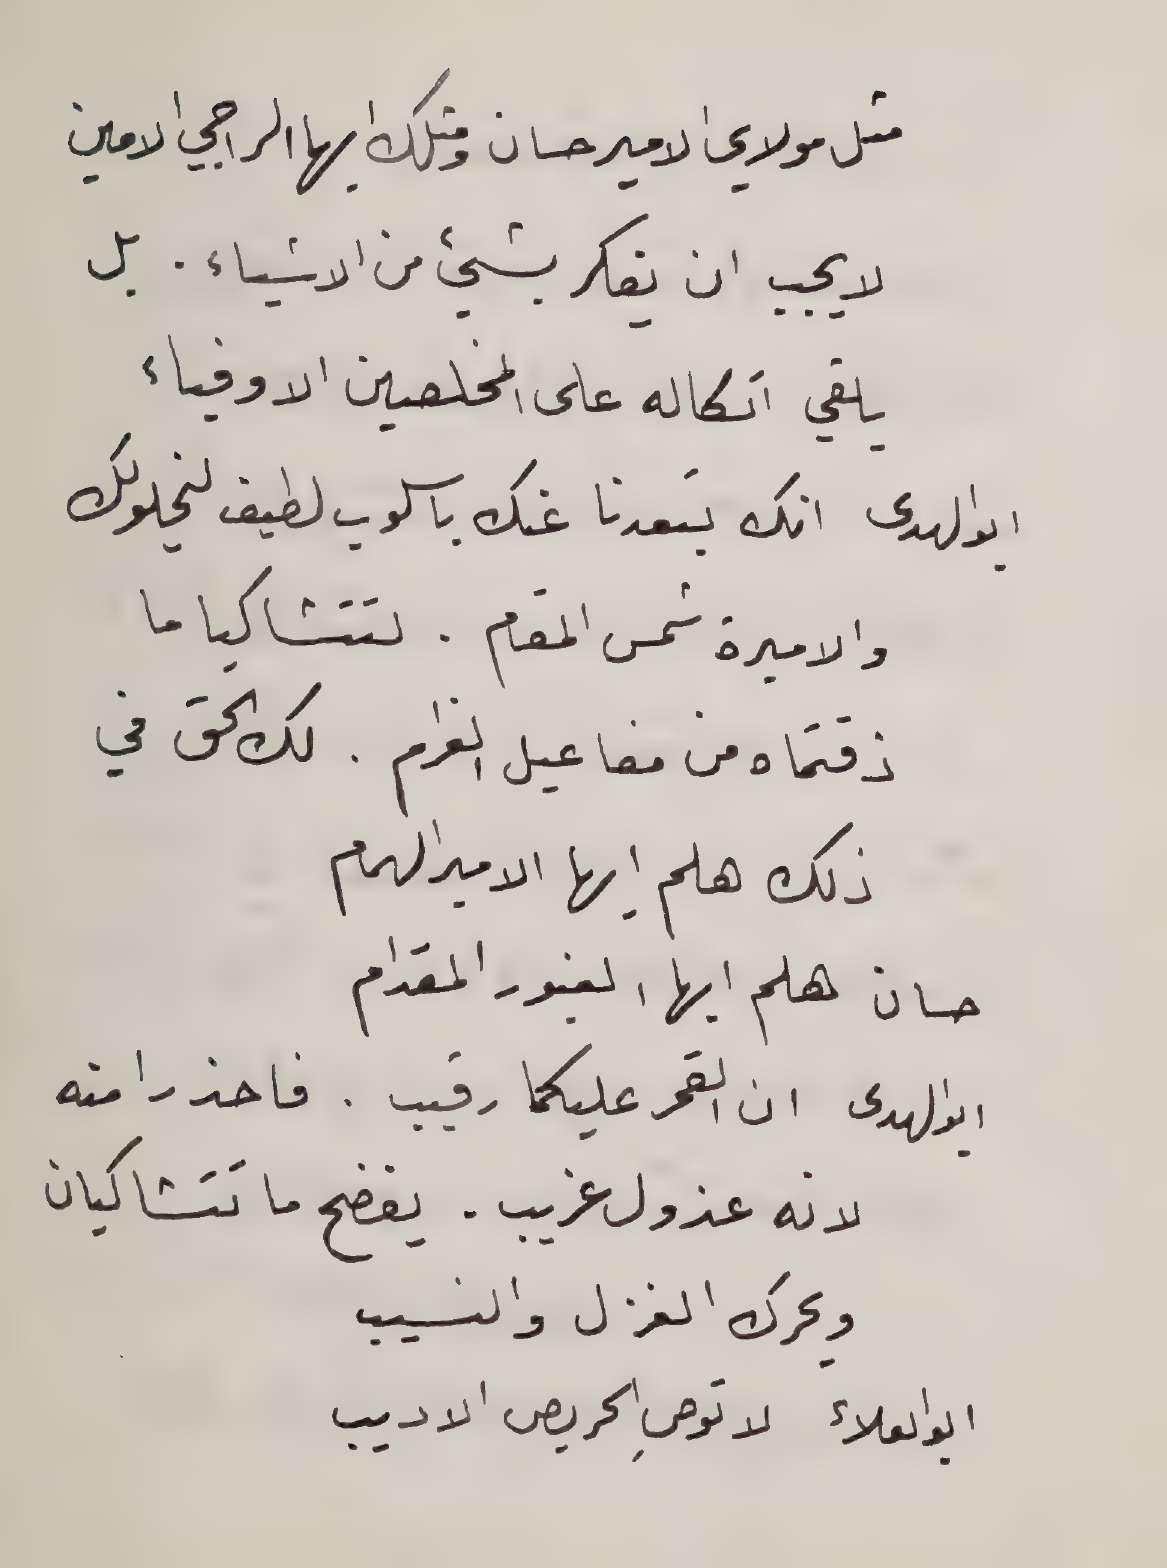 مثل مولاي الامير حسان ومثلك ايها الراجي الامين
لا يجب ان يفكر بشيئ من الاشياء . بل
يلقي اتكاله على المخلصين الاوفياء
ابو الهدى انك تبعدنا عنك باسلوب لطيف لتخلو لك
والاميرة شمس المقام . لتتشاكيا ما
ذقتماه من مفاعيل الغرام . لك الحق في
ذلك هلم ايها الامير الهمام
حسان هلم ايها الغيور المقدام
ابو الهدى ان القمر عليكما رقيب . فاحذرا منه
لانه عذول غريب . يفضح ما تتشاكيان
ويحرك الغزل والنسيب
ابو العلاء لا توصِ الحريص الاديب